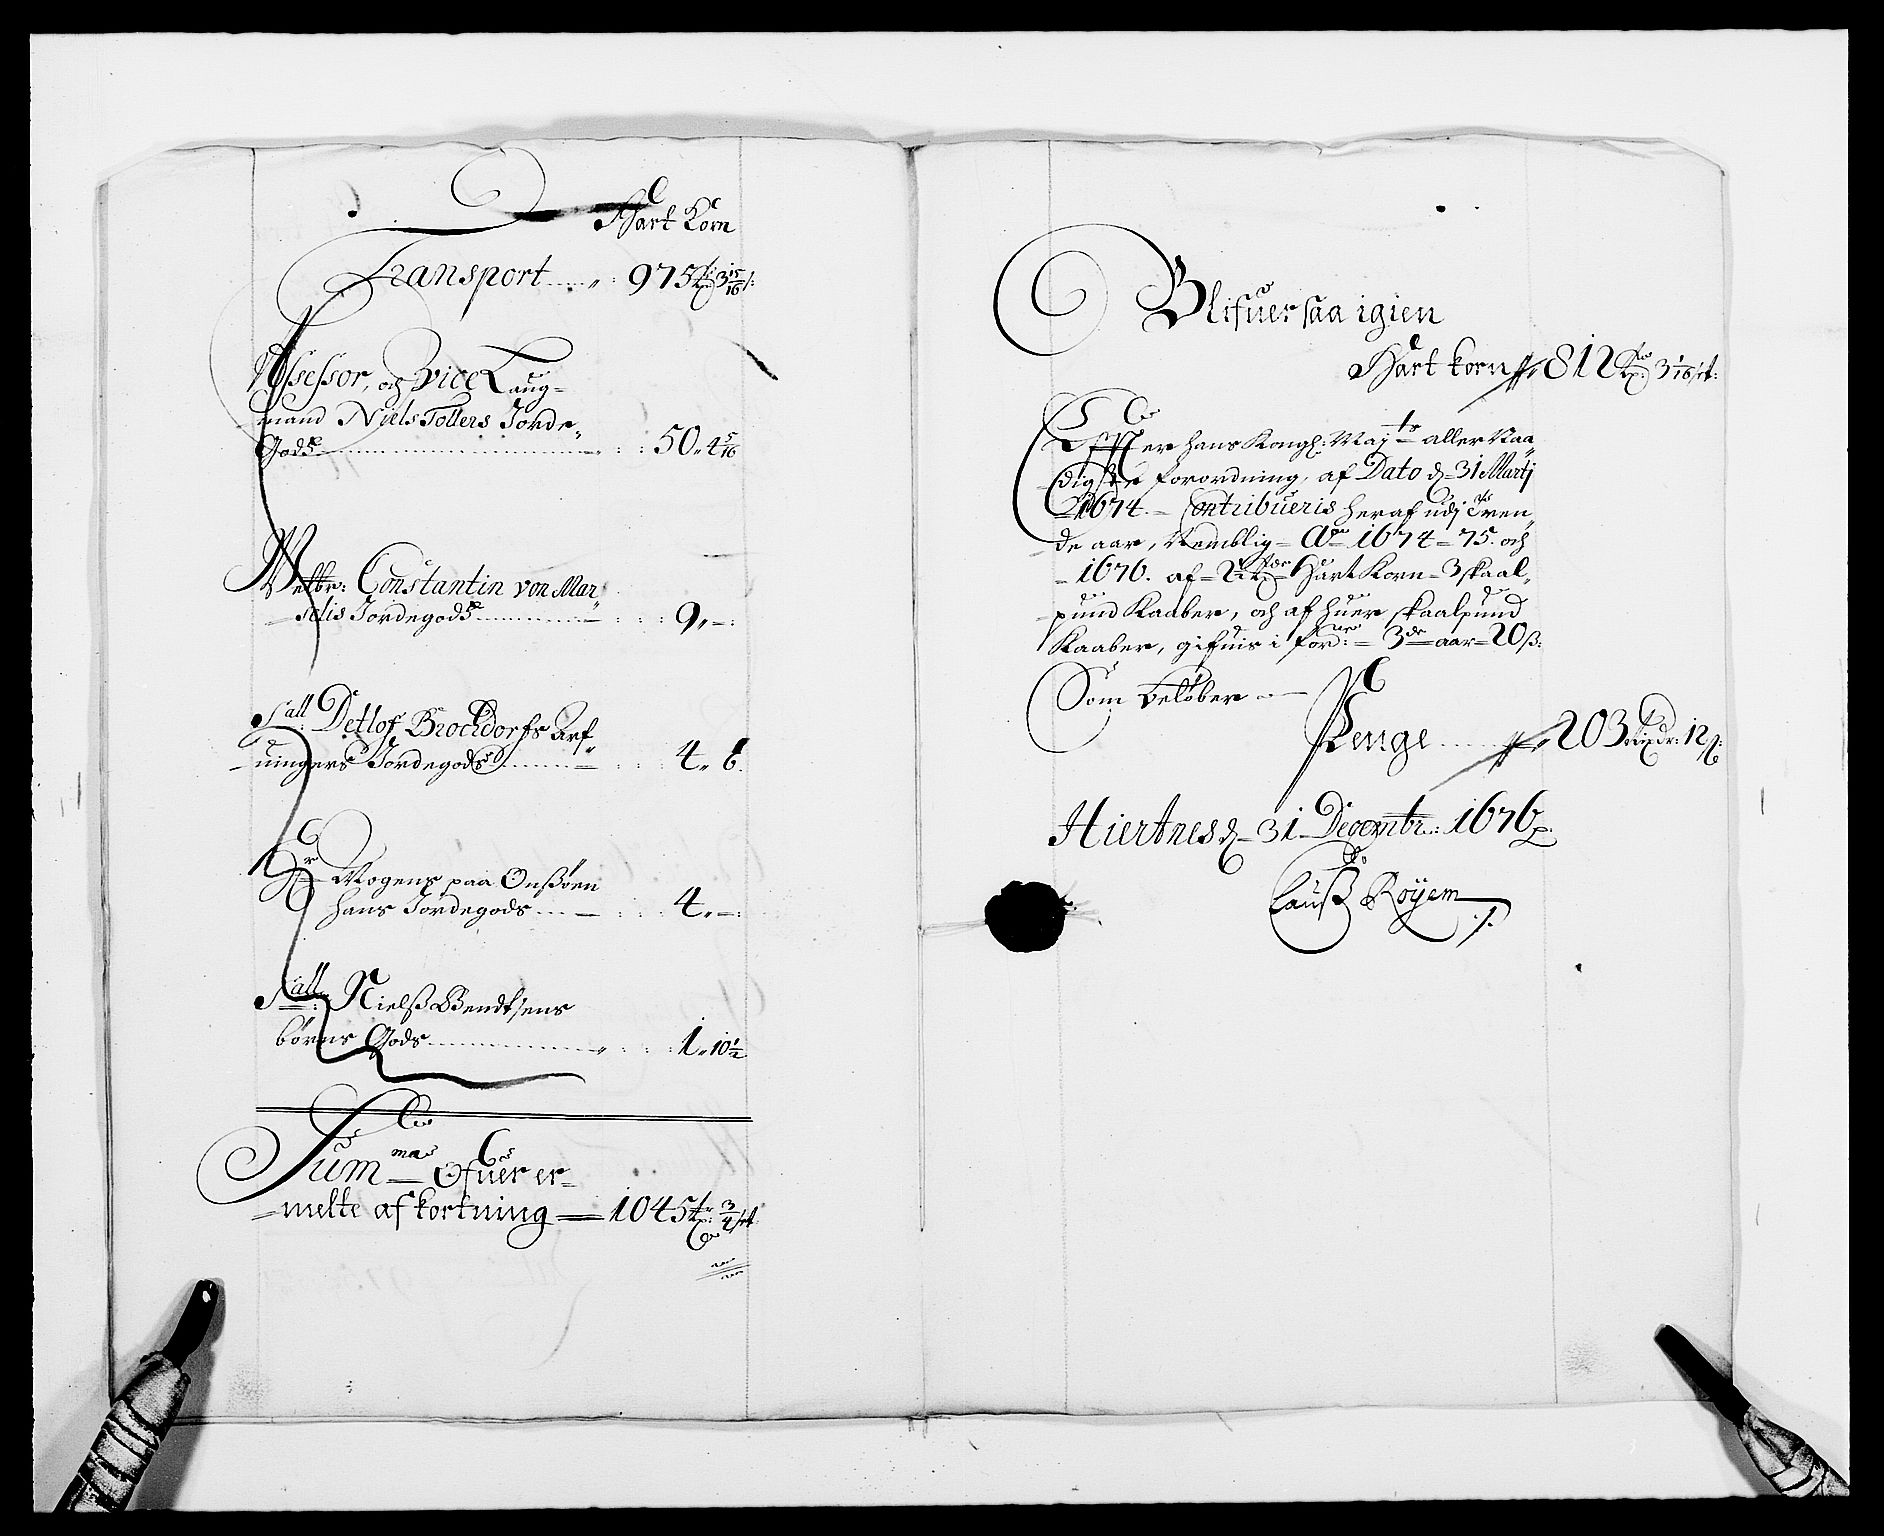 Hart Korn
Transport 975 tr: 3 15/16 s:
Assessor, och Vice Laug=
mand Niels Tollers Jorde-
Gods 50 „ 4 5/16
Velbr: Constantin von Mar-
selis Jordegods 9 „ —
Sall Detlof Brochdorfs Arf-
uingers Jordegods 4 „ 6.
Hr Mogens paa Onsøen
hans Jordegods 4 „ —
Sall: Nielß Bendtsens
børns Gods 1 „ 10 1/2
Summa Ofuer er-
melte afkortning — 1045 tr: 3/4 set
Blifuer saa igien
Hart korn 812 tr: 3 1/16 set:
Effter hans Kongl: Maytts aller Naa-
digste forordning, af Dato d 31 Martj
1674. Contribueris heraf udj Tren-
de aar, Nemblig Ao 1674 = 75. och
1676. af Hart Korn = 3 skaal-
pund Kaaber, och af huer skaalpund
Kaaber, gifuis i for: 3de aar = 20 ß:
Som beløber
Penge 203 Rixdr: 12 s:
Hiertnes d 31 Decembr: 1676
Lauß Röyem